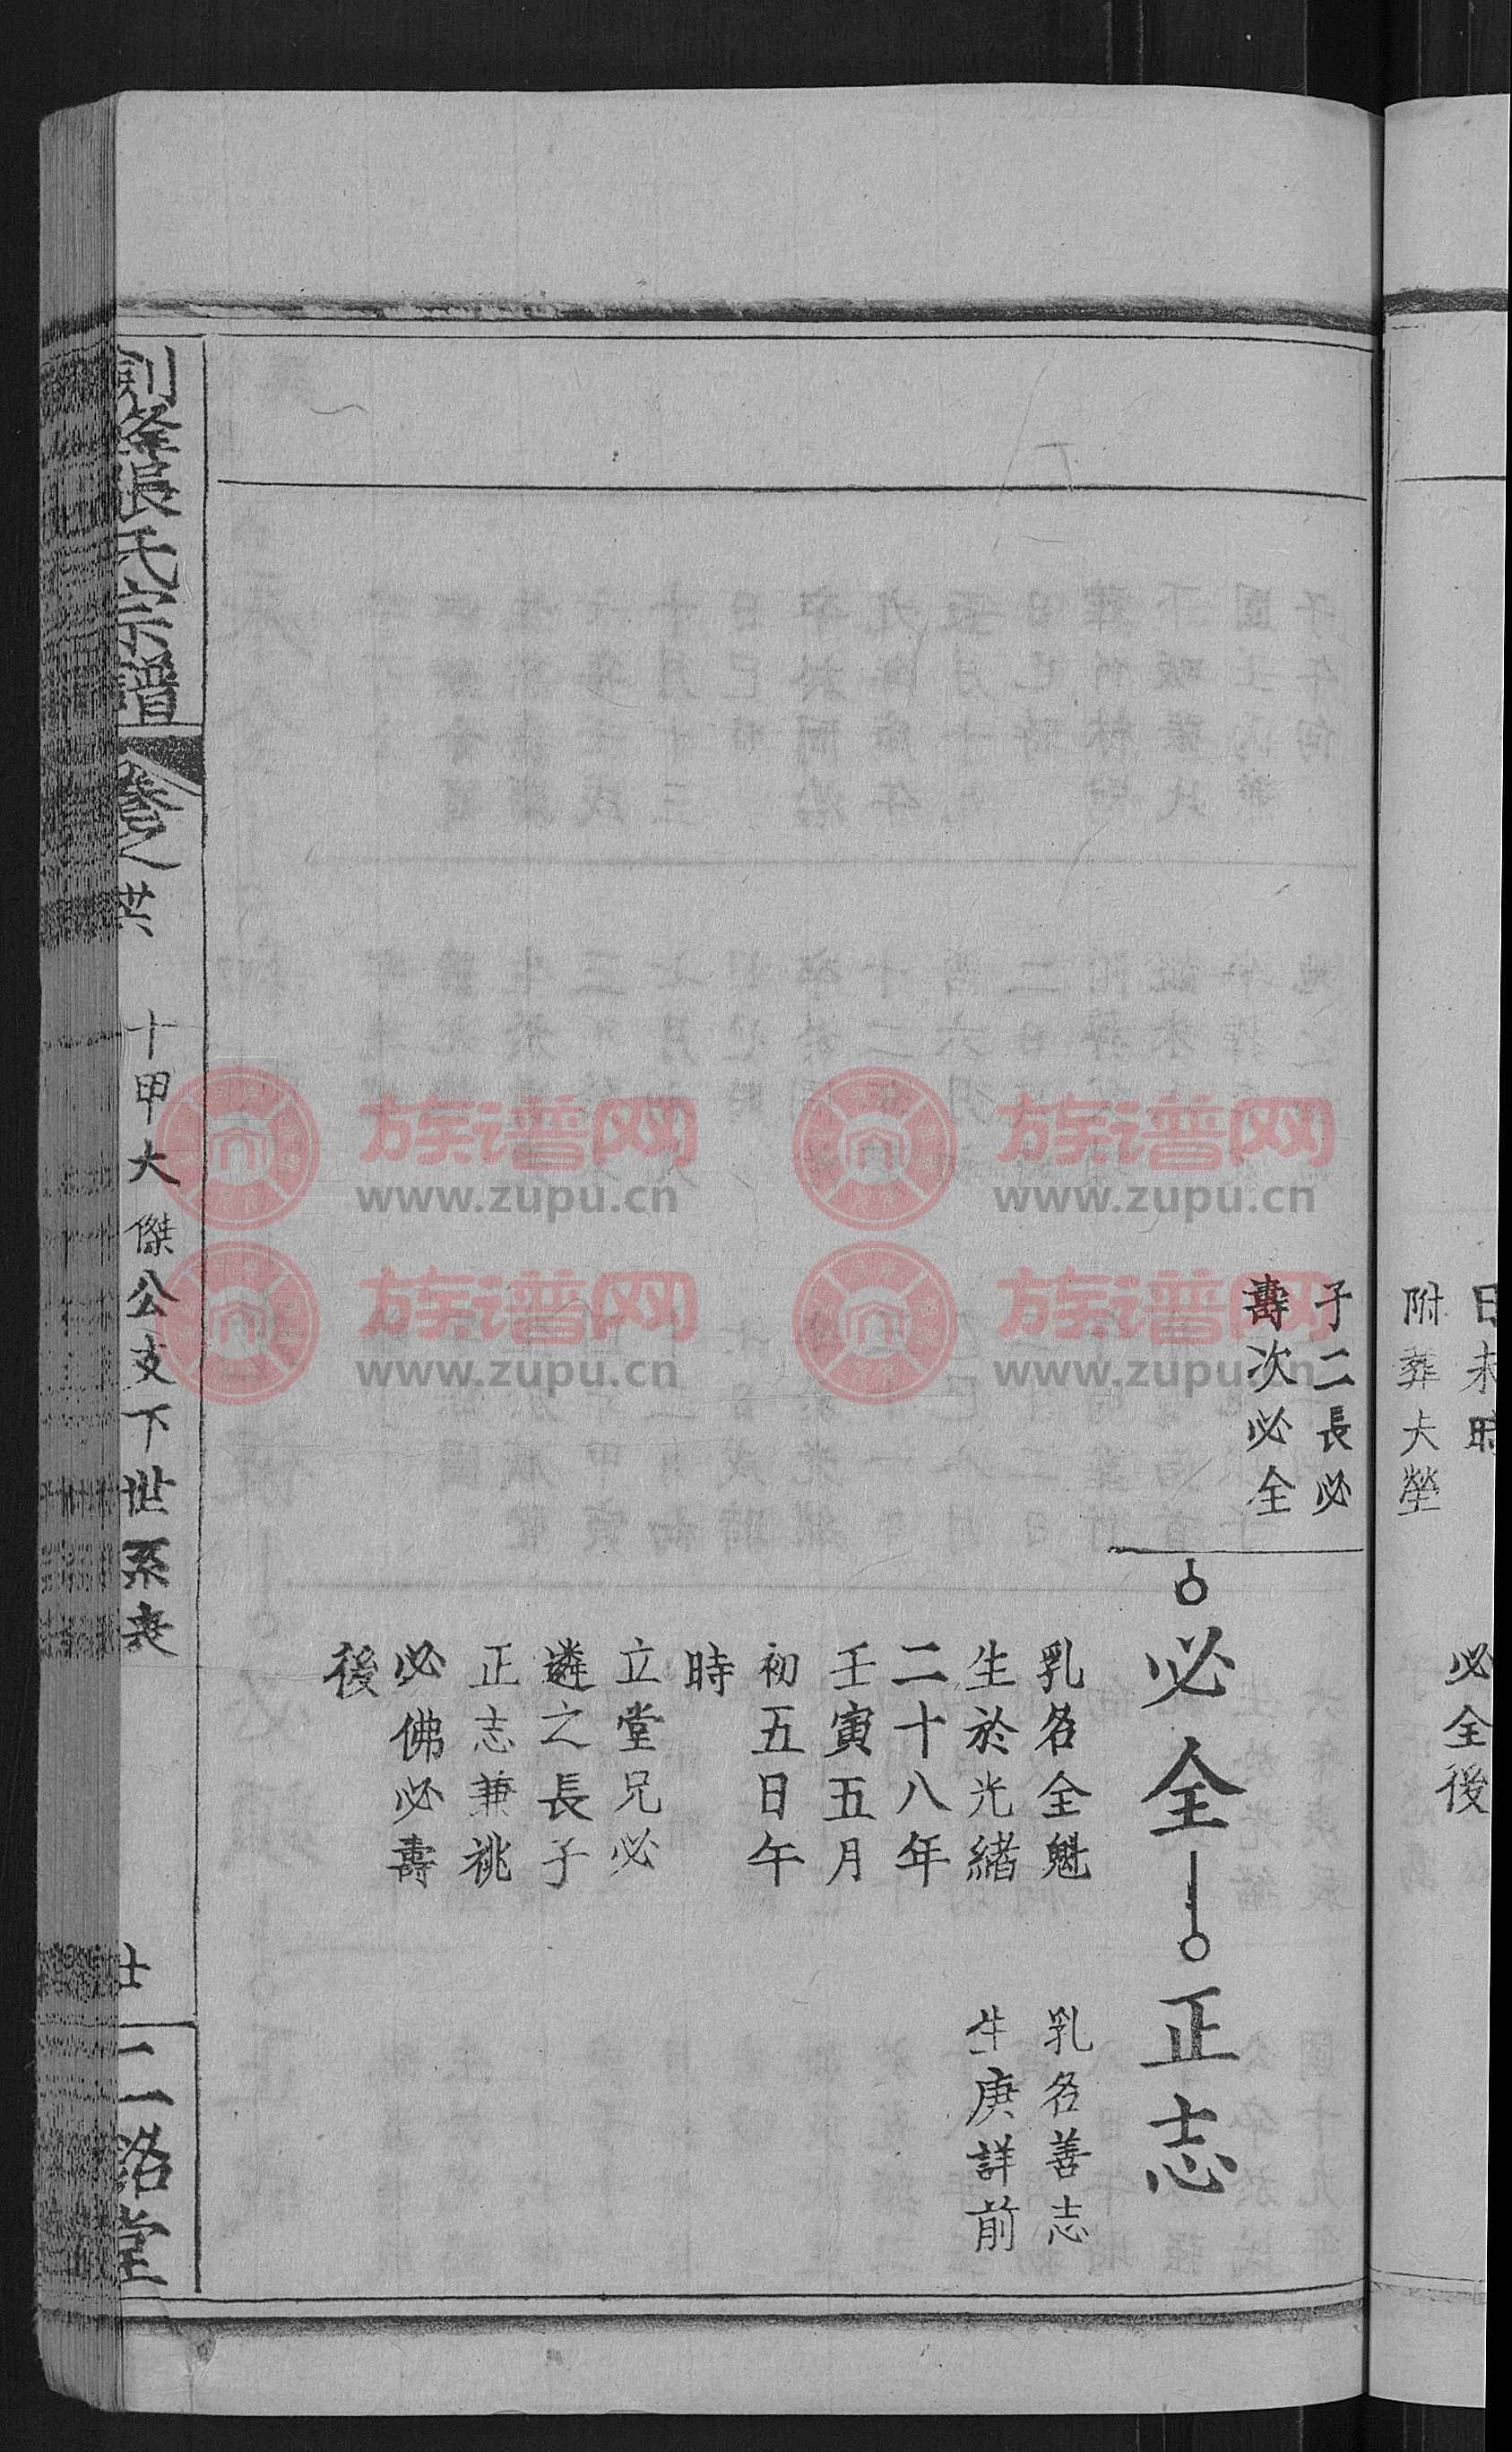 日未時
附葬大塋
必全後
子二長必
壽次必全
必全
乳名全魁
生於光緒
二十八年
壬寅五月
初五日午
時
立堂兄必
遴之長子
正志兼祧
必佛必壽
後
正志
乳名善志
生庚詳前
張氏宗譜
卷之洪
十甲大傑公支下世系表
二銘堂
族谱网
www.zupu.cn
族谱网
www.zupu.cn
族谱网
www.zupu.cn
族谱网
www.zupu.cn